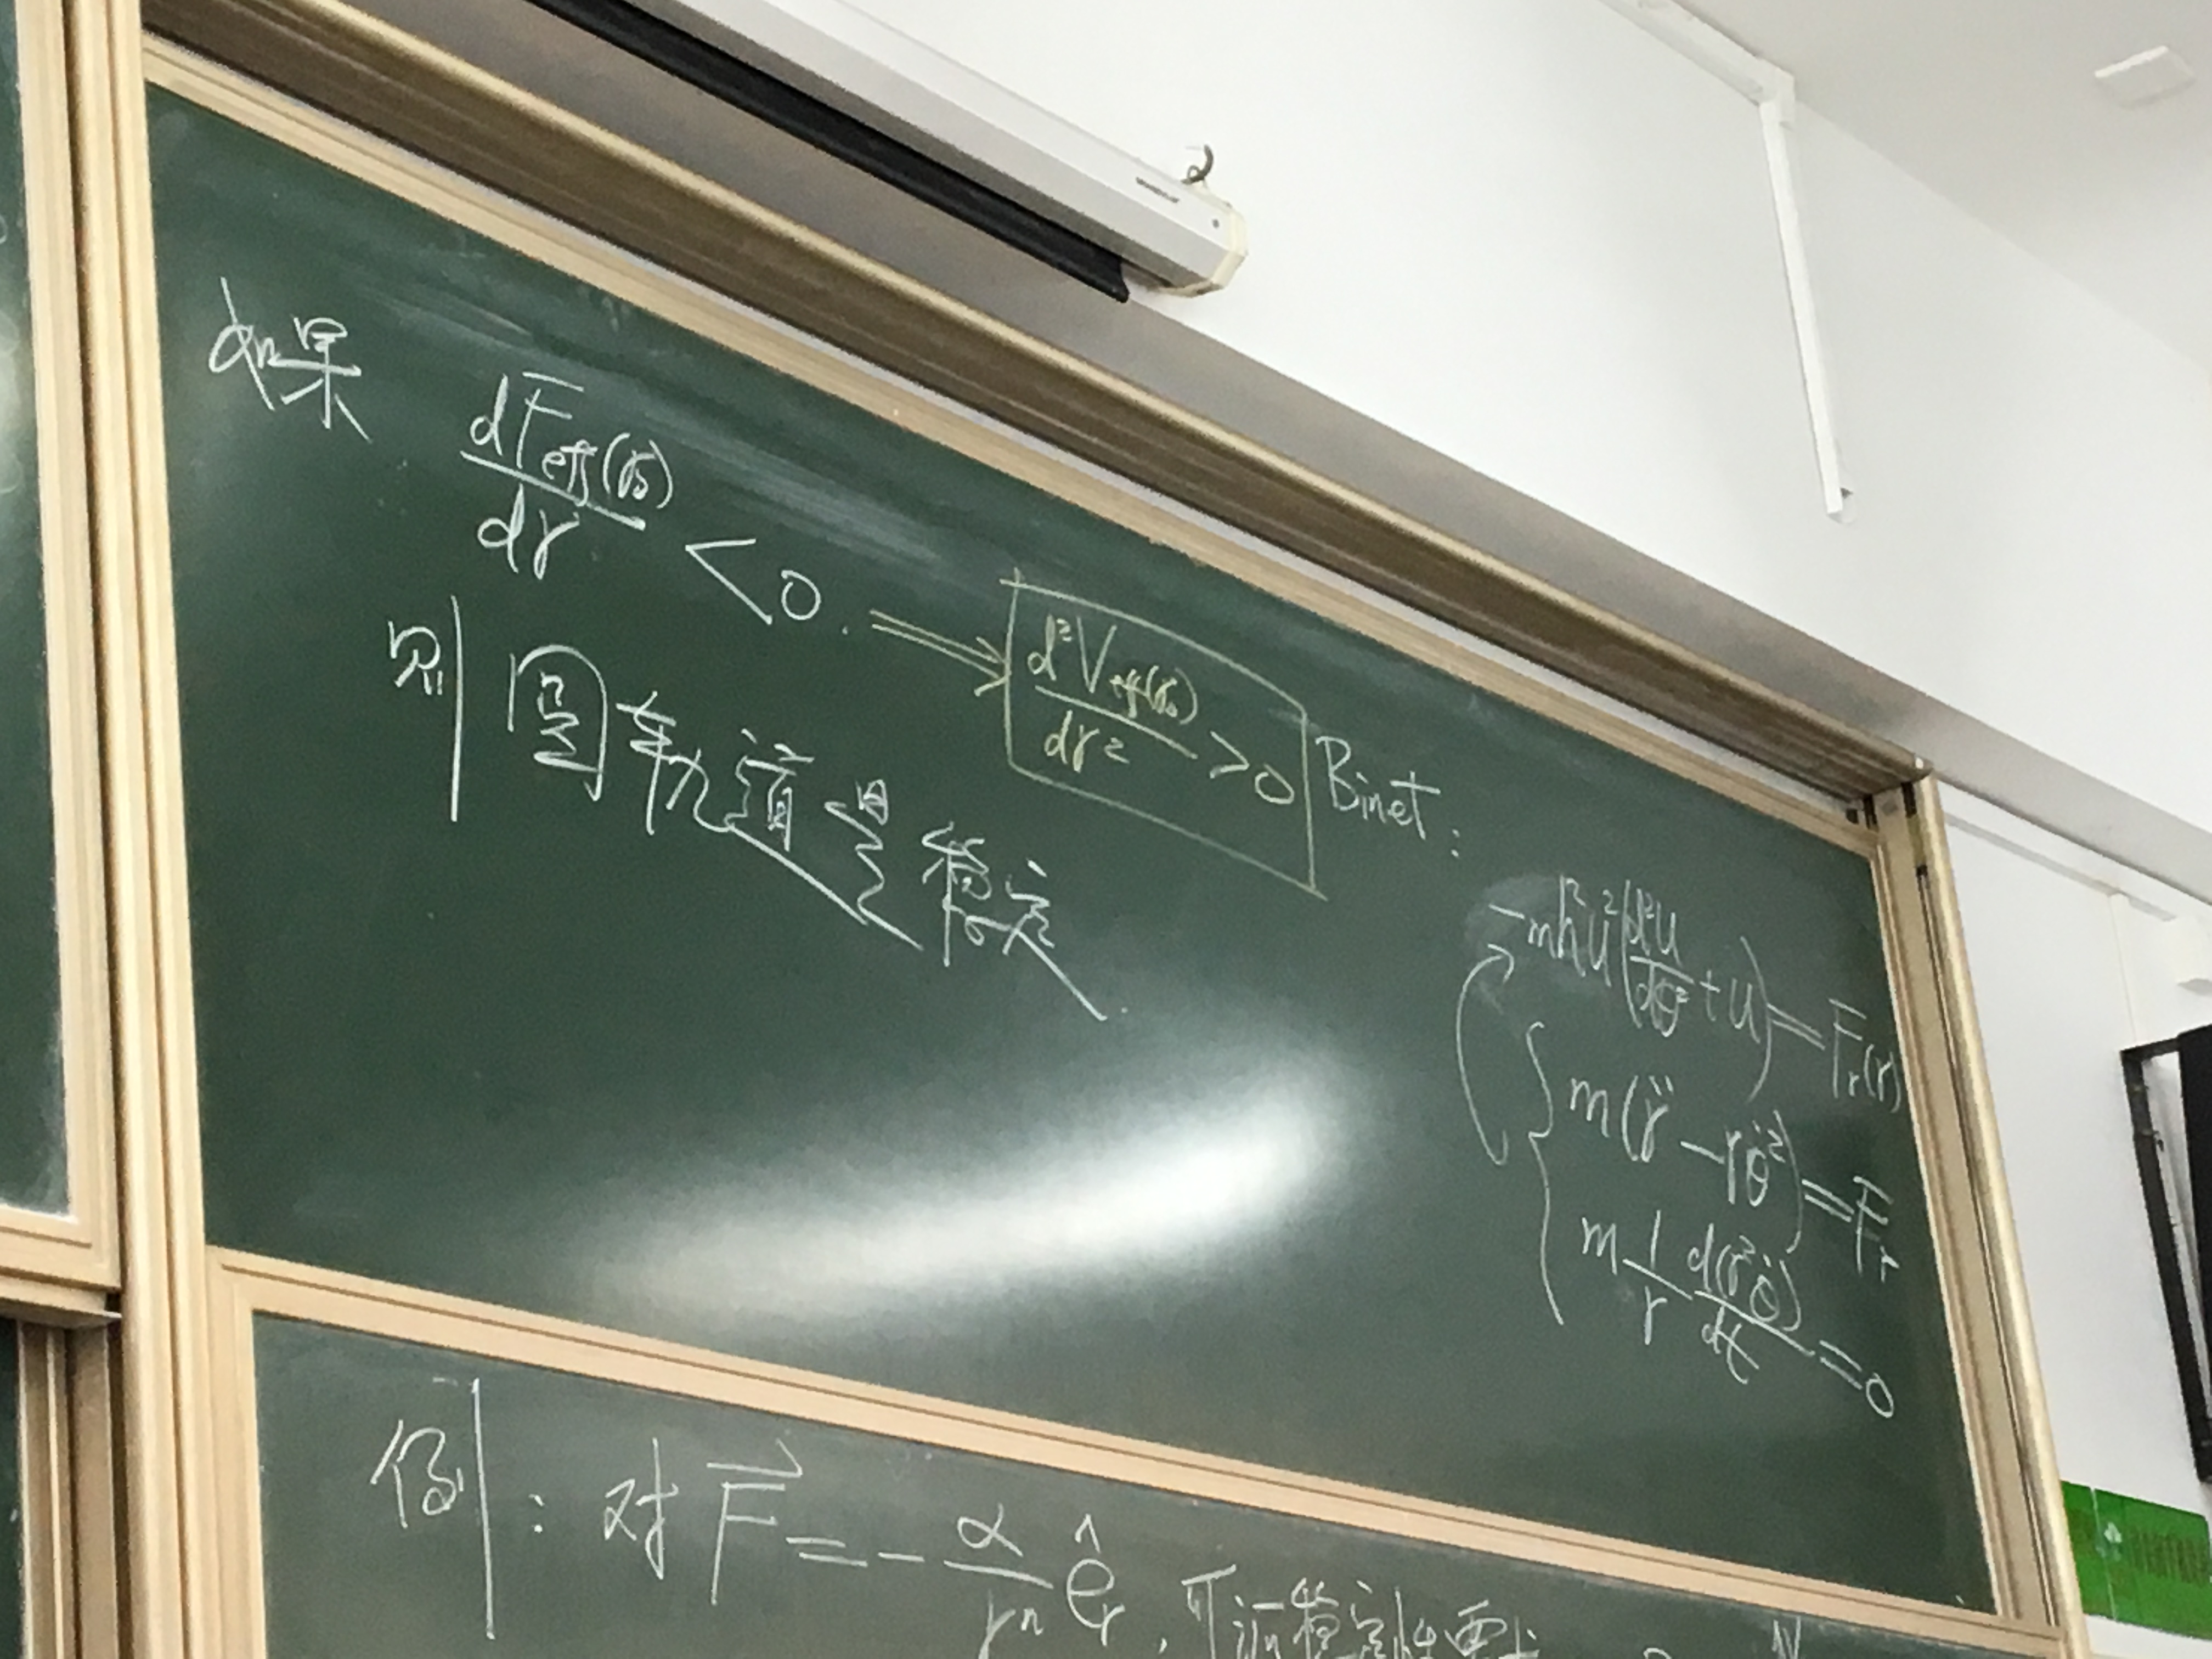 如果 dF_eff(r₀)/dr < 0. ⟹ d²V_eff(r₀)/dr² > 0
则圆轨道是稳定.
Binet:
-mh²u²(d²u/dθ² + u) = F_r(r)
m(r̈ - rθ̇²) = F_r
m 1/r d(r²θ̇)/dt = 0
例: 对 F⃗ = - α/rⁿ ê_r, 可证稳定性要求